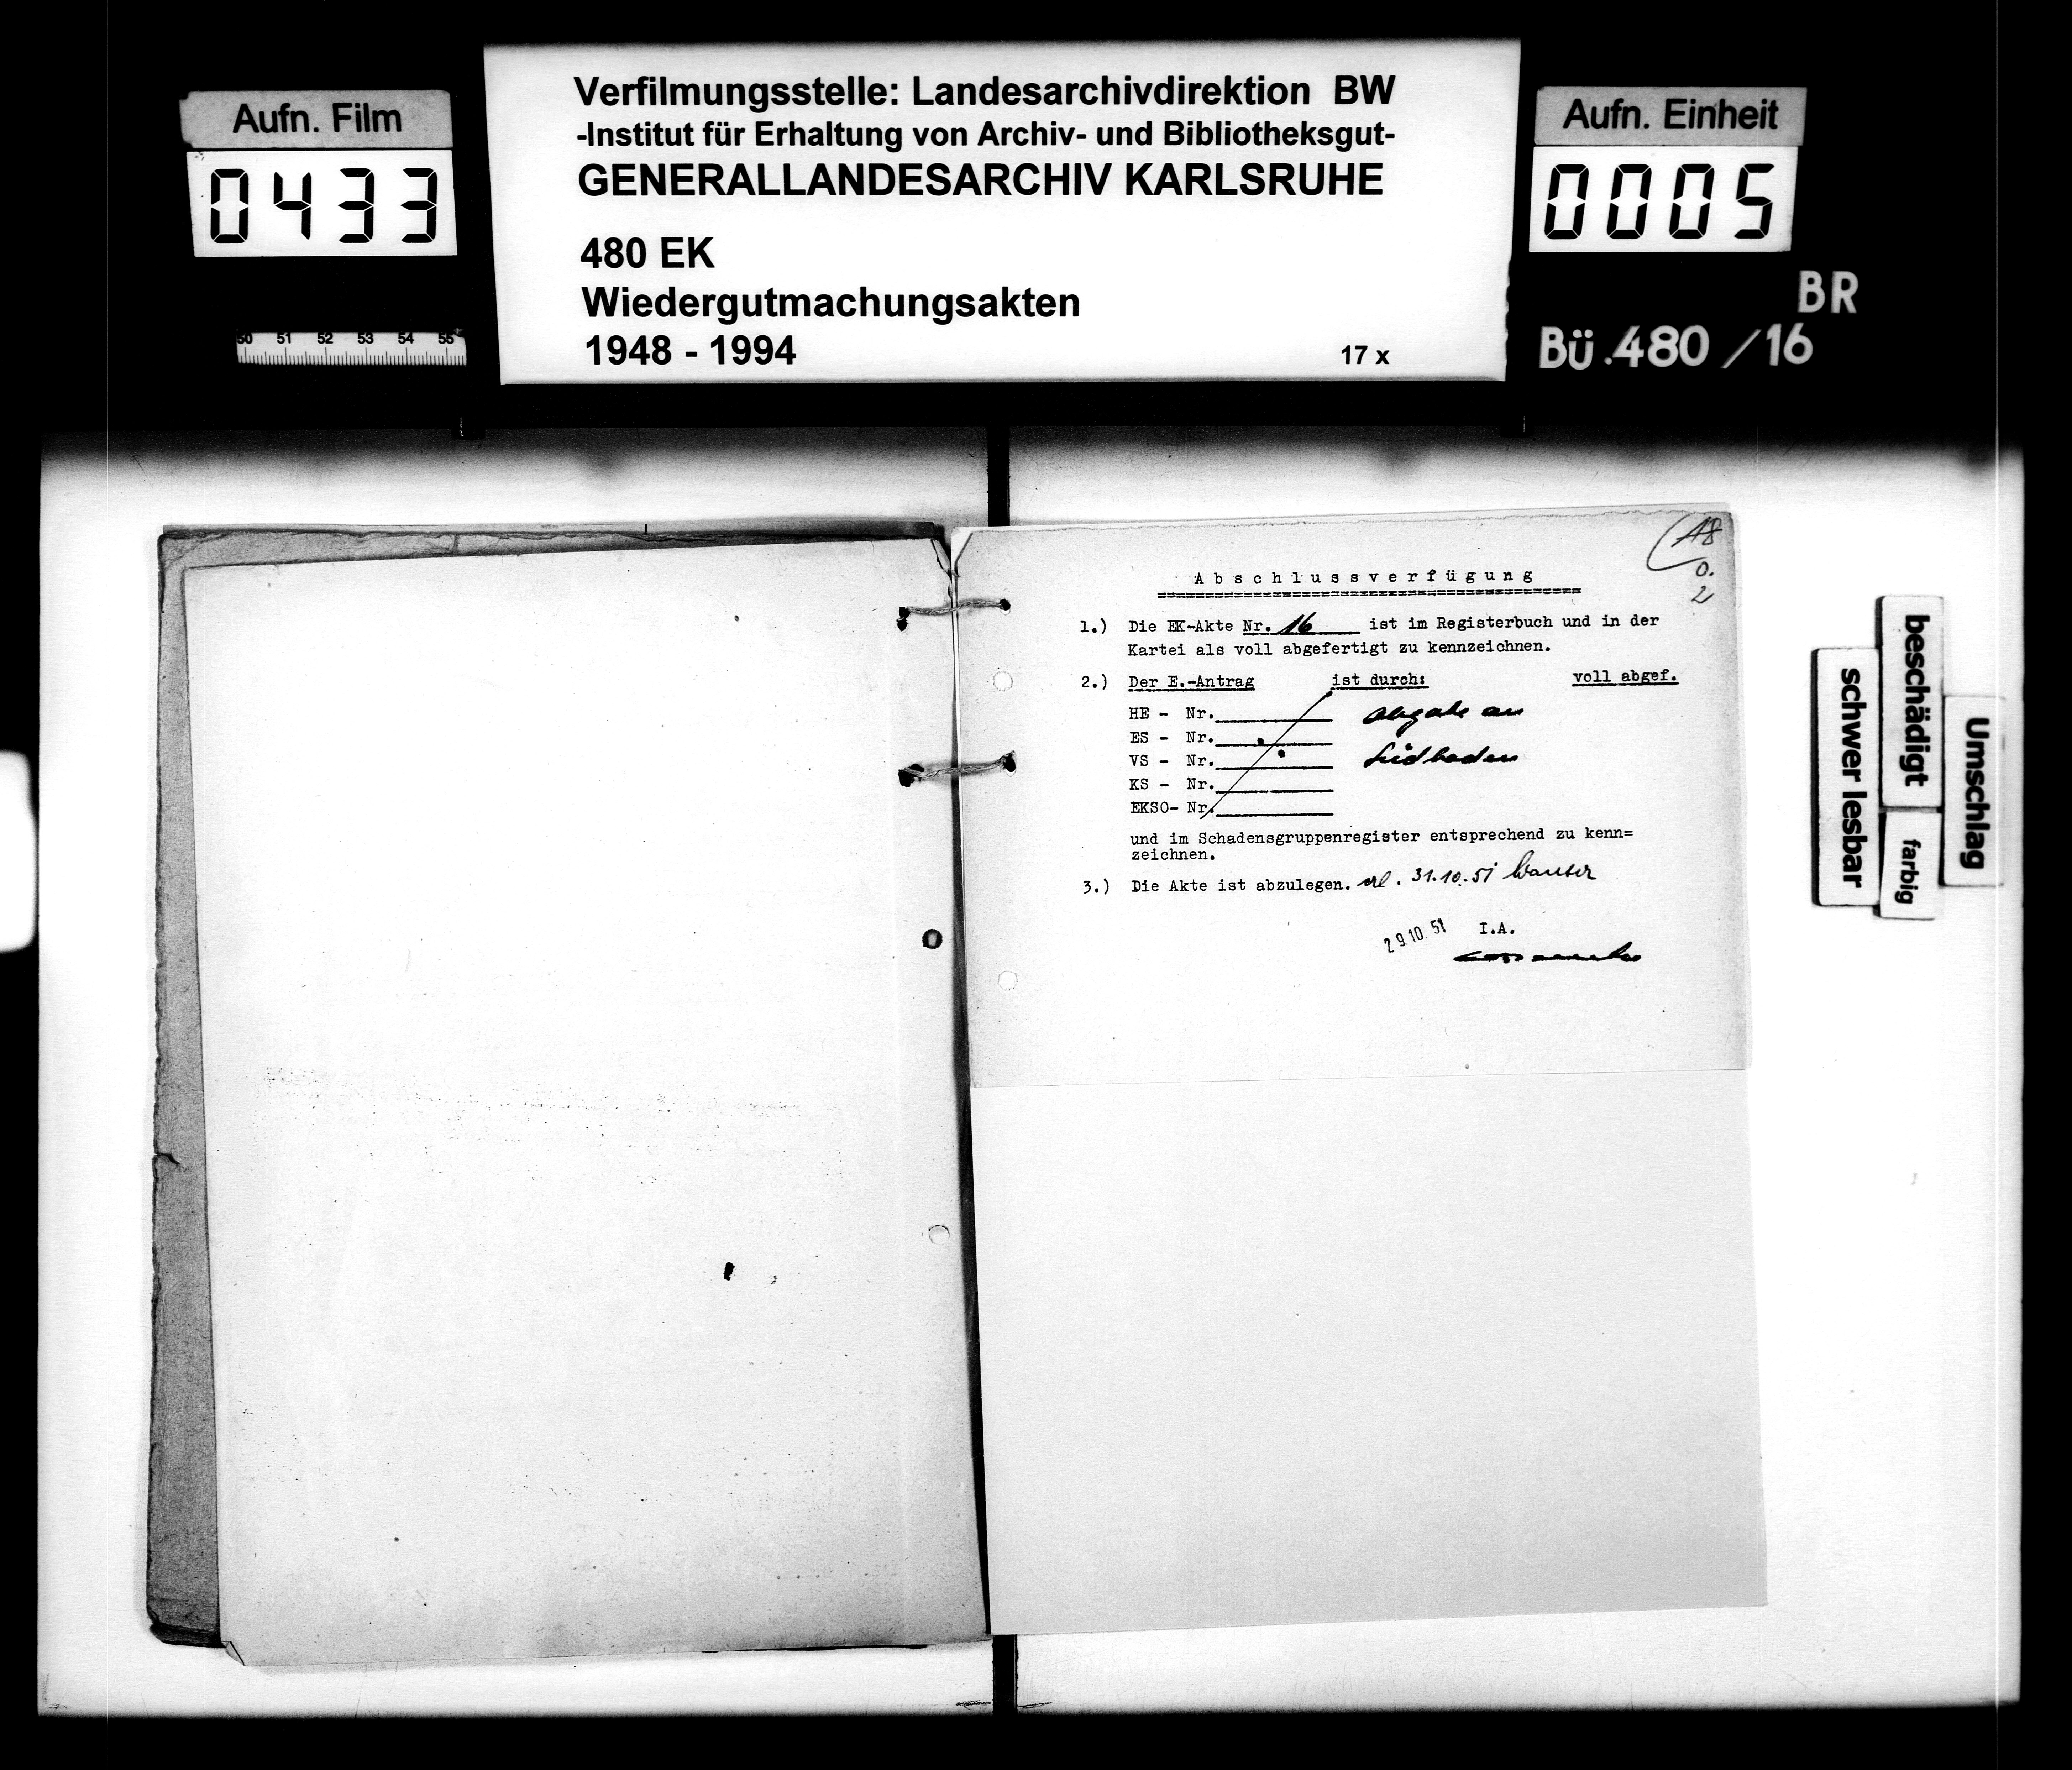 Aufn. Film
0433
50 51 52 53 54 55
Verfilmungsstelle: Landesarchivdirektion BW
-Institut für Erhaltung von Archiv- und Bibliotheksgut-
GENERALLANDESARCHIV KARLSRUHE
480 EK
Wiedergutmachungsakten
1948 - 1994
17 x
Aufn. Einheit
0005
BR
Bü.480 /16
0.
2
Abschlussverfügung
1.) Die EK-Akte Nr. 16 ist im Registerbuch und in der
Kartei als voll abgefertigt zu kennzeichnen.
2.) Der E.-Antrag ist durch: voll abgef.
HE - Nr. Abgabe an
ES - Nr.
VS - Nr. Südbaden
KS - Nr.
EKSO- Nr.
und im Schadensgruppenregister entsprechend zu kenn=
zeichnen.
3.) Die Akte ist abzulegen. erl. 31.10.51
29.10.51 I.A.
schwer lesbar
beschädigt
farbig
Umschlag